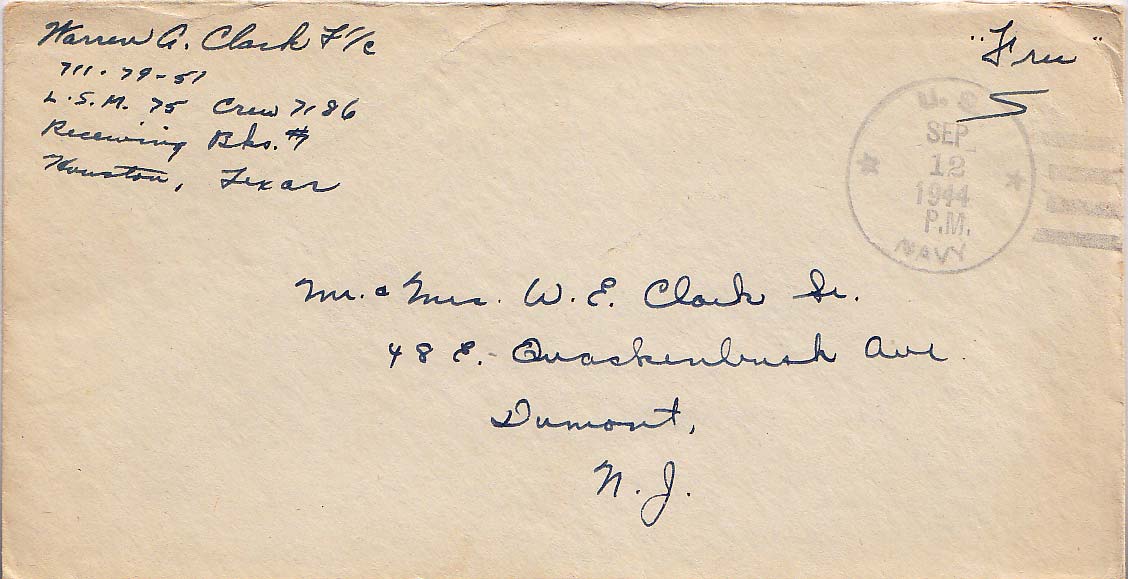 Warren A. Clark F 1/c
711-79-51
L.S.M. 75 Crew 7186
Receiving Bks. #7
Houston, Texas
"Free"
U.S.
SEP
12
1944
P.M.
NAVY
Mr. & Mrs. W. E. Clark Sr.
48 E. Quackenbush Ave.
Dumont,
N. J.